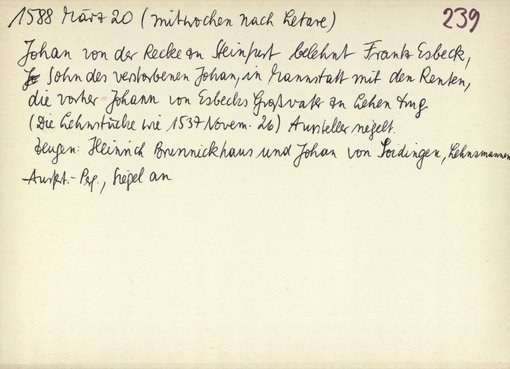 1588 März 20 (Mittwochen nach Letare) 239
Johan von der Recke zu Steinfurt belehnt Frantz Esbeck,
Sohn des verstorbenen Johan, in Mannstatt mit den Renten,
die vorher Johann von Esbecks Großvater zu Lehen trug.
(Die Lehnstücke wie 1537 Novem. 26) Aussteller siegelt.
Zeugen: Heinrich Brunnickhaus und Johan von Soidingen, Lehnsmannen
Ausf.-Pg., Siegel an